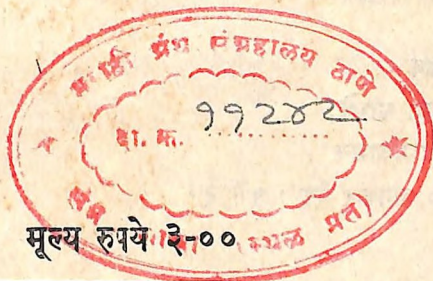 मराठी ग्रंथ संग्रहालय ठाणे
दा. क्र. ११२४२
स्थळ प्रत)
मूल्य रुपये ३-००